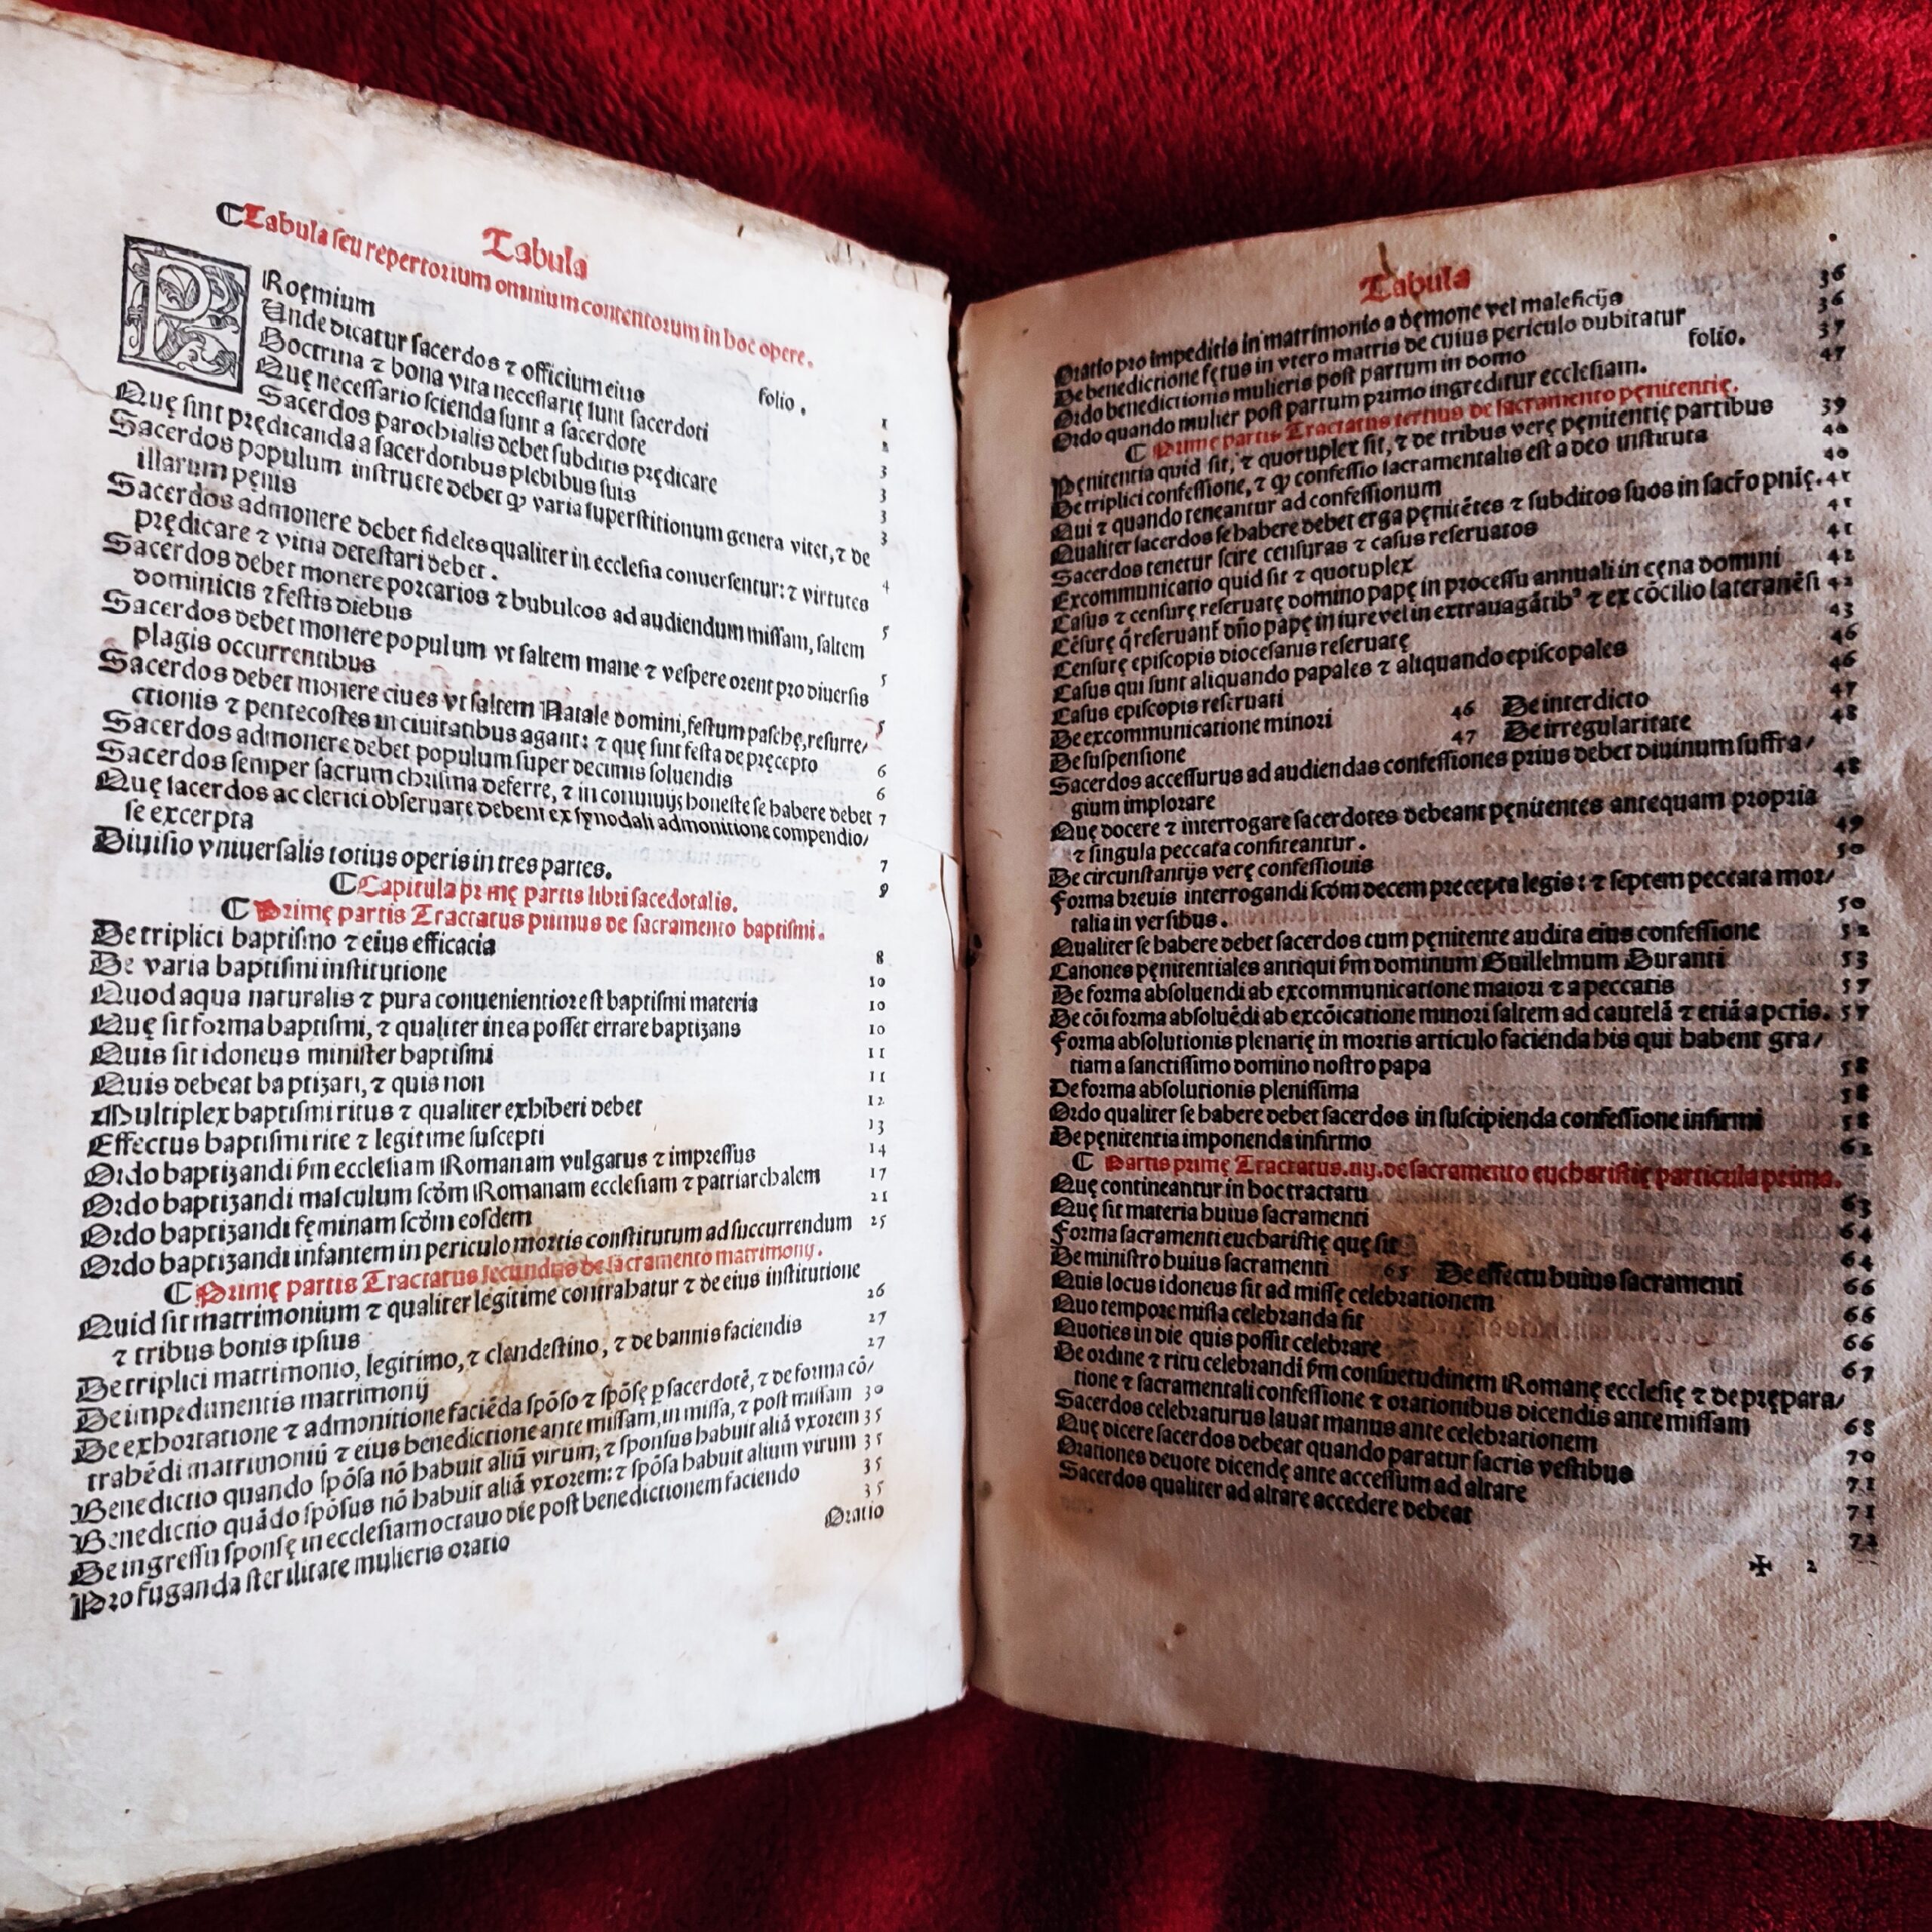 Tabula
¶ Tabula seu repertorium omnium contentorum in hoc opere.
PRoęmium folio. 1
Unde dicatur sacerdos ⁊ officium eius 2
Doctrina ⁊ bona vita necessarię sunt sacerdoti 3
Quę necessario scienda sunt a sacerdote 3
Sacerdos parochialis debet subditis prędicare 3
Quę sint prędicanda a sacerdotibus plebibus suis 3
Sacerdos populum instruere debet ꝙ varia superstitionum genera vitet, ⁊ de
illarum pęnis 4
Sacerdos admonere debet fideles qualiter in ecclesia conuersentur: ⁊ virtutes
prędicare ⁊ vitia detestari debet. 5
Sacerdos debet monere porcarios ⁊ bubulcos ad audiendum missam, saltem
dominicis ⁊ festis diebus 5
Sacerdos debet monere populum vt saltem mane ⁊ vespere orent pro diuersis
plagis occurrentibus 5
Sacerdos debet monere ciues vt saltem Natale domini, festum paschę, resurre/
ctionis ⁊ pentecostes in ciuitatibus agant: ⁊ quę sint festa de pręcepto 6
Sacerdos admonere debet populum super decimis soluendis 6
Sacerdos semper sacrum chrisma deferre, ⁊ in conuiuijs honeste se habere debet 7
Quę sacerdos ac clerici obseruare debent ex synodali admonitione compendio/
se excerpta 7
Diuisio vniuersalis totius operis in tres partes. 8
¶ Capitula primę partis libri sacedotalis.
¶ Primę partis Tractatus primus de sacramento baptismi.
De triplici baptismo ⁊ eius efficacia 8
De varia baptismi institutione 10
Quod aqua naturalis ⁊ pura conuenientior est baptismi materia 10
Quę sit forma baptismi, ⁊ qualiter in ea posset errare baptizans 10
Quis sit idoneus minister baptismi 11
Quis debeat baptizari, ⁊ quis non 11
Multiplex baptismi ritus ⁊ qualiter exhiberi debet 12
Effectus baptismi rite ⁊ legitime suscepti 13
Ordo baptizandi ẜm ecclesiam Romanam vulgatus ⁊ impressus 14
Ordo baptizandi masculum scd̃m Romanam ecclesiam ⁊ patriarchalem 17
Ordo baptizandi fęminam scd̃m eosdem 21
Ordo baptizandi infantem in periculo mortis constitutum ad succurrendum 25
¶ Primę partis Tractatus secundus de sacramento matrimonij.
Quid sit matrimonium ⁊ qualiter legitime contrahatur ⁊ de eius institutione
⁊ tribus bonis ipsius 26
De triplici matrimonio, legitimo, ⁊ clandestino, ⁊ de bannis faciendis 27
De impedimentis matrimonij 27
De exhortatione ⁊ admonitione faciẽda spõso ⁊ spõsę p sacerdotẽ, ⁊ de forma cõ/
trahẽdi matrimoniũ ⁊ eius benedictione ante missam, in missa, ⁊ post missam 30
Benedictio quando spõsa nõ habuit aliũ virum, ⁊ sponsus habuit aliã vxorem 35
Benedictio quãdo spõsus nõ habuit aliã vxorem: ⁊ spõsa habuit alium virum 35
De ingressu sponsę in ecclesiam octauo die post benedictionem faciendo 35
Pro fuganda sterilitate mulieris oratio 35
Oratio
Tabula
Oratio pro impeditis in matrimonio a dęmone vel maleficijs 36
De benedictione fętus in vtero matris de cuius periculo dubitatur 36
Ordo benedictionis mulieris post partum in domo folio. 37
Ordo quando mulier post partum primo ingreditur ecclesiam. 47
¶ Primę partis Tractatus tertius de sacramento pęnitentię.
Pęnitentia quid sit, ⁊ quotuplex sit, ⁊ de tribus verę pęnitentię partibus 39
De triplici confessione, ⁊ ꝙ confessio sacramentalis est a deo instituta 40
Qui ⁊ quando teneantur ad confessionum 40
Qualiter sacerdos se habere debet erga pęnitẽtes ⁊ subditos suos in sacr̃o pnię. 41
Sacerdos tenetur scire censuras ⁊ casus reseruatos 41
Excommunicatio quid sit ⁊ quotuplex 41
Casus ⁊ censurę reseruatę domino papę in processu annuali in cęna domini 42
Cẽsurę q̃ reseruant̃ dño papę in iure vel in extrauagãtib⁹ ⁊ ex cõcilio lateranẽsi 42
Censurę episcopis diocesanis reseruatę 43
Casus qui sunt aliquando papales ⁊ aliquando episcopales 46
Casus episcopis reseruati 46
De excommunicatione minori 46 De interdicto 47
De suspensione 47 De irregularitate 48
Sacerdos accessurus ad audiendas confessiones prius debet diuinum suffra/
gium implorare 48
Quę docere ⁊ interrogare sacerdotes debeant pęnitentes antequam propria
⁊ singula peccata confiteantur. 49
De circunstantijs verę confessionis 50
Forma breuis interrogandi scd̃m decem precepta legis: ⁊ septem peccata mor/
talia in versibus. 50
Qualiter se habere debet sacerdos cum pęnitente audita eius confessione 52
Canones pęnitentiales antiqui ẜm dominum Guillelmum Duranti 53
De forma absoluendi ab excommunicatione maiori ⁊ a peccatis 57
De cõi forma absoluẽdi ab excõicatione minori saltem ad cautelã ⁊ etiã a pctis. 57
Forma absolutionis plenarię in mortis articulo facienda his qui habent gra/
tiam a sanctissimo domino nostro papa 58
De forma absolutionis plenissima 58
Ordo qualiter se habere debet sacerdos in suscipienda confessione infirmi 58
De pęnitentia imponenda infirmo 62
¶ Partis primę Tractatus .iiij. de sacramento eucharistię particula prima.
Quę contineantur in hoc tractatu 63
Quę sit materia huius sacramenti 64
Forma sacramenti eucharistię quę sit 64
De ministro huius sacramenti 65 De effectu huius sacramenti 66
Quis locus idoneus sit ad missę celebrationem 66
Quo tempore missa celebranda sit 66
Quoties in die quis possit celebrare 67
De ordine ⁊ ritu celebrandi ẜm consuetudinem Romanę ecclesię ⁊ de prępara/
tione ⁊ sacramentali confessione ⁊ orationibus dicendis ante missam 68
Sacerdos celebraturus lauat manus ante celebrationem 70
Quę dicere sacerdos debeat quando paratur sacris vestibus 71
Orationes deuote dicendę ante accessum ad altare 71
Sacerdos qualiter ad altare accedere debeat 72
✠ 2